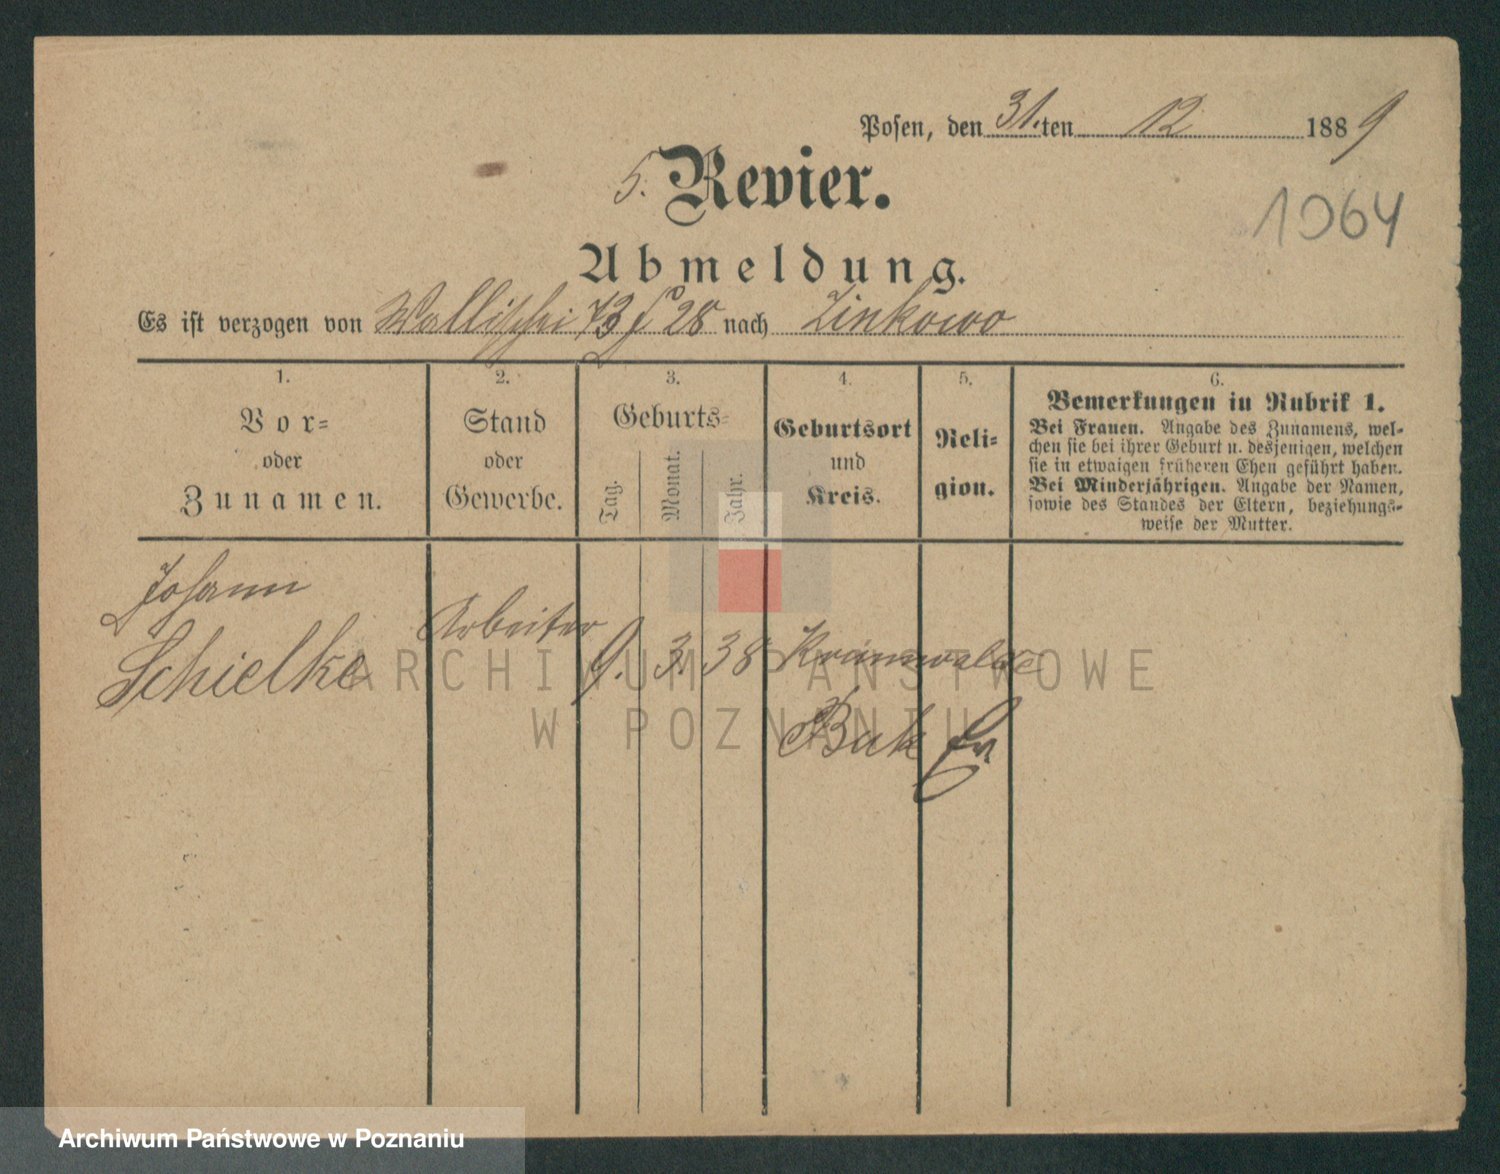 Posen, den 31.ten 12 1889
5. Revier.
1064
Abmeldung.
Es ist verzogen von Wallischei 73 nach Zinkowo
1.
2.
3.
4.
5.
6.
Vor-
oder
Zunamen.
Stand
oder
Gewerbe.
Geburts-
Tag.
Monat.
Jahr.
Geburtsort
und
Kreis.
Reli-
gion.
Bemerkungen in Rubrik 1.
Bei Frauen. Angabe des Zunamens, wel-
chen sie bei ihrer Geburt u. desjenigen, welchen
sie in etwaigen früheren Ehen geführt haben.
Bei Minderjährigen. Angabe der Namen,
sowie des Standes der Eltern, beziehungs-
weise der Mutter.
Johann
Schielke
Arbeiter
9. 3. 38
Buk
ev
ARCHIWUM PAŃSTWOWE
W POZNANIU
Archiwum Państwowe w Poznaniu